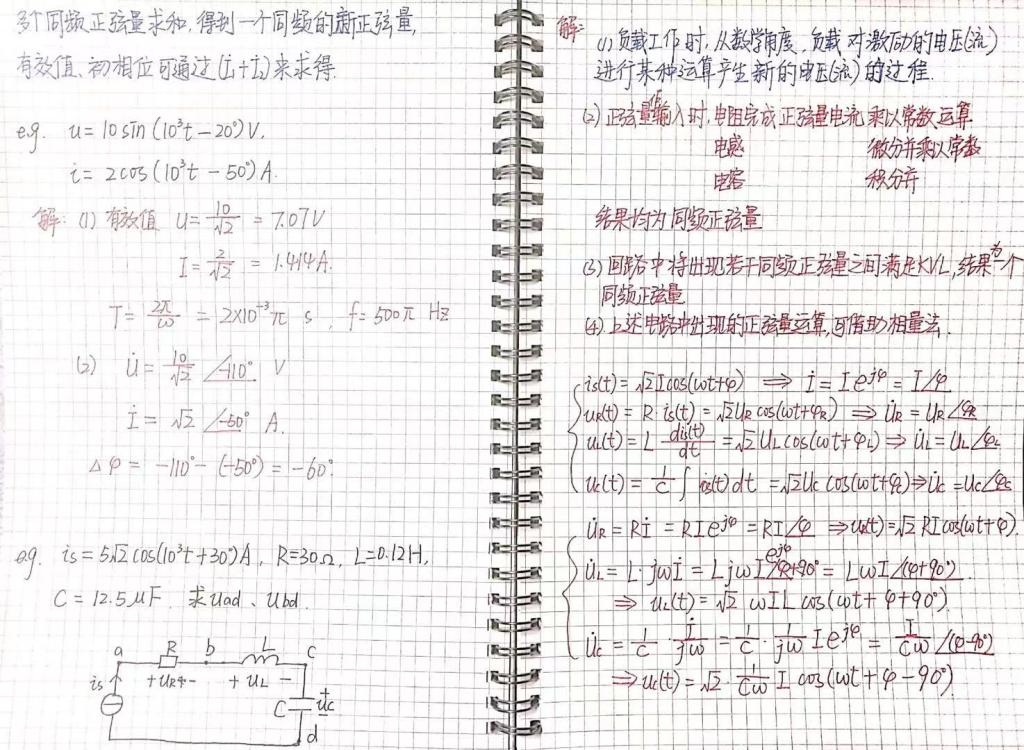 多个同频正弦量求和,得到一个同频的新正弦量,
有效值、初相位可通过(İ₁+İ₂)来求得.
e.g. u=10sin(10³t-20°)V,
i=2cos(10³t-50°)A.
解:(1) 有效值 U=10/√2=7.07V
I=2/√2=1.414A.
T=2π/ω=2×10⁻³π s, f=500π Hz
(2) U̇=10/√2 ∠-110° V
İ=√2 ∠-50° A.
Δφ=-110°-(-50°)=-60°
e.g. is=5√2cos(10³t+30°)A, R=30Ω, L=0.12H,
C=12.5μF. 求uad、ubd.
a R b L c
is +uR- + uL -
C + uc -
d
解:
(1) 负载工作时,从数学角度,负载对激励的电压(流)
进行某种运算产生新的电压(流)的过程.
(2) 正弦量作输入时,电阻完成正弦量电流乘以常数运算
电感 微分并乘以常数
电容 积分并
结果均为同频正弦量
(3) 回路中将出现若干同频正弦量之间满足KVL,结果为一个
同频正弦量
(4) 上述电路中出现的正弦量运算,可借助相量法.
is(t)=√2Icos(ωt+φ) ⇒ İ=Ie^jφ=I∠φ
uR(t)=R·is(t)=√2URcos(ωt+φR) ⇒ U̇R=UR∠φR
uL(t)=L dis(t)/dt=√2ULcos(ωt+φL) ⇒ U̇L=UL∠φL
uc(t)=1/C ∫is(t)dt=√2Uc cos(ωt+φc) ⇒ U̇c=Uc∠φc
U̇R=Rİ=RIe^jφ=RI∠φ ⇒ uR(t)=√2RIcos(ωt+φ).
U̇L=L·jωİ=LjωIe^jφ∠φ+90°=LωI∠(φ+90°).
⇒ uL(t)=√2 ωIL cos(ωt+φ+90°)
U̇c=1/C·İ/jω=1/C·1/jω Ie^jφ=I/Cω∠(φ-90°)
⇒ uc(t)=√2·1/Cω I cos(ωt+φ-90°)